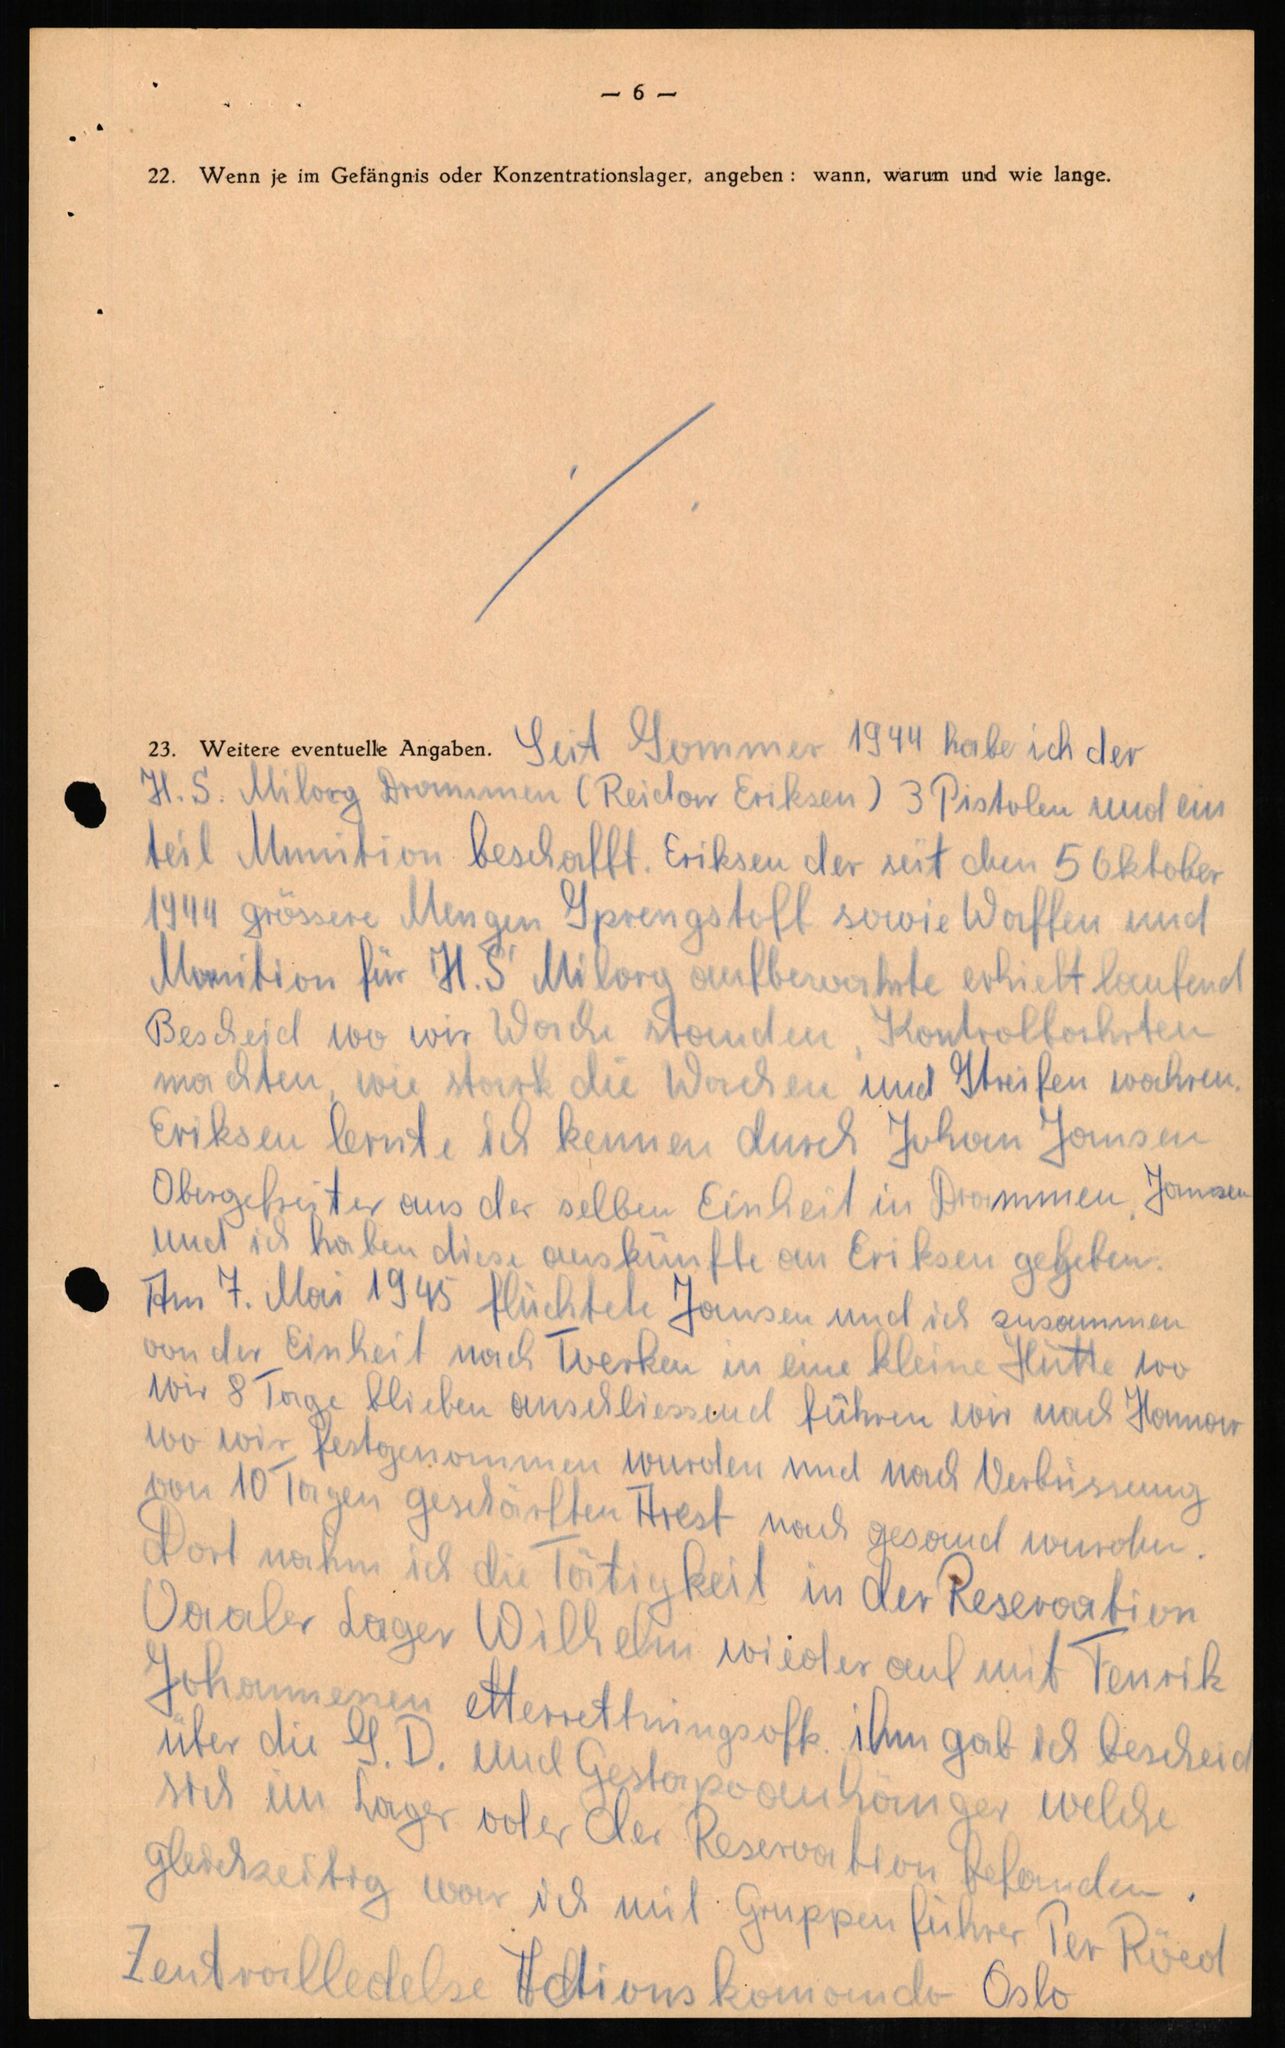 — 6 —
22. Wenn je im Gefängnis oder Konzentrationslager, angeben: wann, warum und wie lange.
23. Weitere eventuelle Angaben. Seit Sommer 1944 habe ich der
H. S. Milorg Drammen (Reidar Eriksen) 3 Pistolen und ein
teil Munition beschafft. Eriksen der seit den 5 Oktober
1944 grössere Mengen Sprengstoff sowie Waffen und
Munition für H. S Milorg aufbewahrte erhielt laufend
Bescheid wo wir Wache standen, Kontrollfahrten
machten, wie stark die Wachen und Streifen wahren.
Eriksen lernte ich kennen durch Johan Jansen
Obergefreiter aus der selben Einheit in Drammen. Jansen
und ich haben diese auskünfte an Eriksen gegeben.
Am 7. Mai 1945 flüchtete Jansen und ich zusammen
von der Einheit nach Tverken in eine kleine Hütte wo
wir 8 Tage blieben anschliessend führen wir nach Hamar
wo wir festgenommen wurden und nach Verbüssung
von 10 Tagen geschärften Arest nach gesand wurden.
Dort nahm ich die Tätigkeit in der Reservation
Vaaler Lager Wilhelm wieder auf mit Fenrik
Johannessen etterretningsofk. ihm gab ich bescheid
über die S. D. und Gestapoanhänger welche
sich im Lager oder der Reservation befanden.
gleichzeitig war ich mit Gruppenführer Per Röed
Zentralledelse Actionskomando Oslo